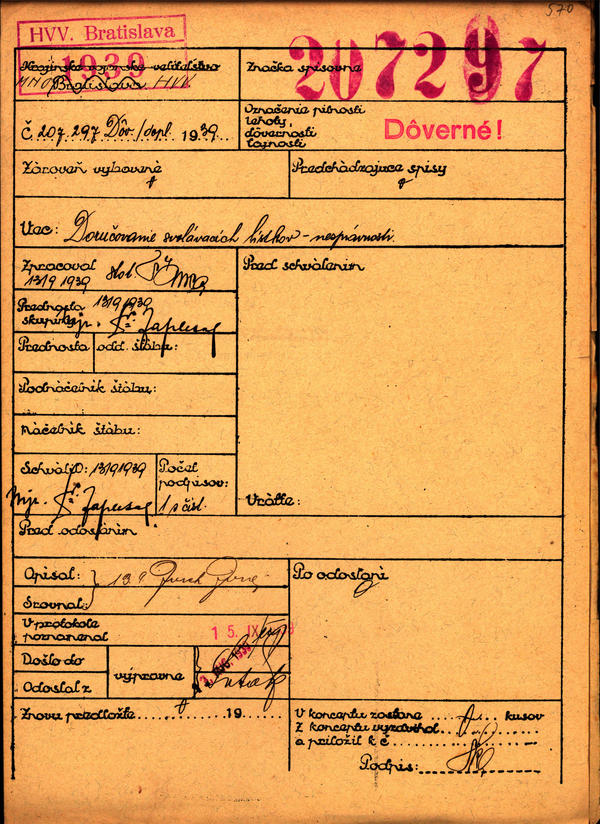 570
HVV. Bratislava
1939
Krajinské vojenské veliteľstvo
MNO Bratislava HVV
Značka spisovne
207297
Č 207.297 Dôv./dopl. 1939
Označenie pilnosti
lehoty,
dôvernosti
tajnosti
Dôverné!
Zároveň vybavené
Predchádzajúce spisy
Vec: Doručovanie svolávacích lístkov - nesprávnosti.
Zpracoval
13/9 1939 stot.
Pred schválením
Prednosta 13/9 1939
skupiny mjr.
Prednosta odd. štábu:
Podnáčelník štábu:
Náčelník štábu:
Schválil: 13/9 1939
Mjr.
Počet
podpisov:
1 s čísl.
Vráťte:
Pred odoslaním
Opisal: 13/9
Srovnal:
Po odoslaní
V protokole
poznamenal
15. IX
Došlo do
Odoslal z
výpravne
Znovu predložte 19
V koncepte zostane kusov
Z konceptu vyzdvihol
a priložil k č
Podpis: